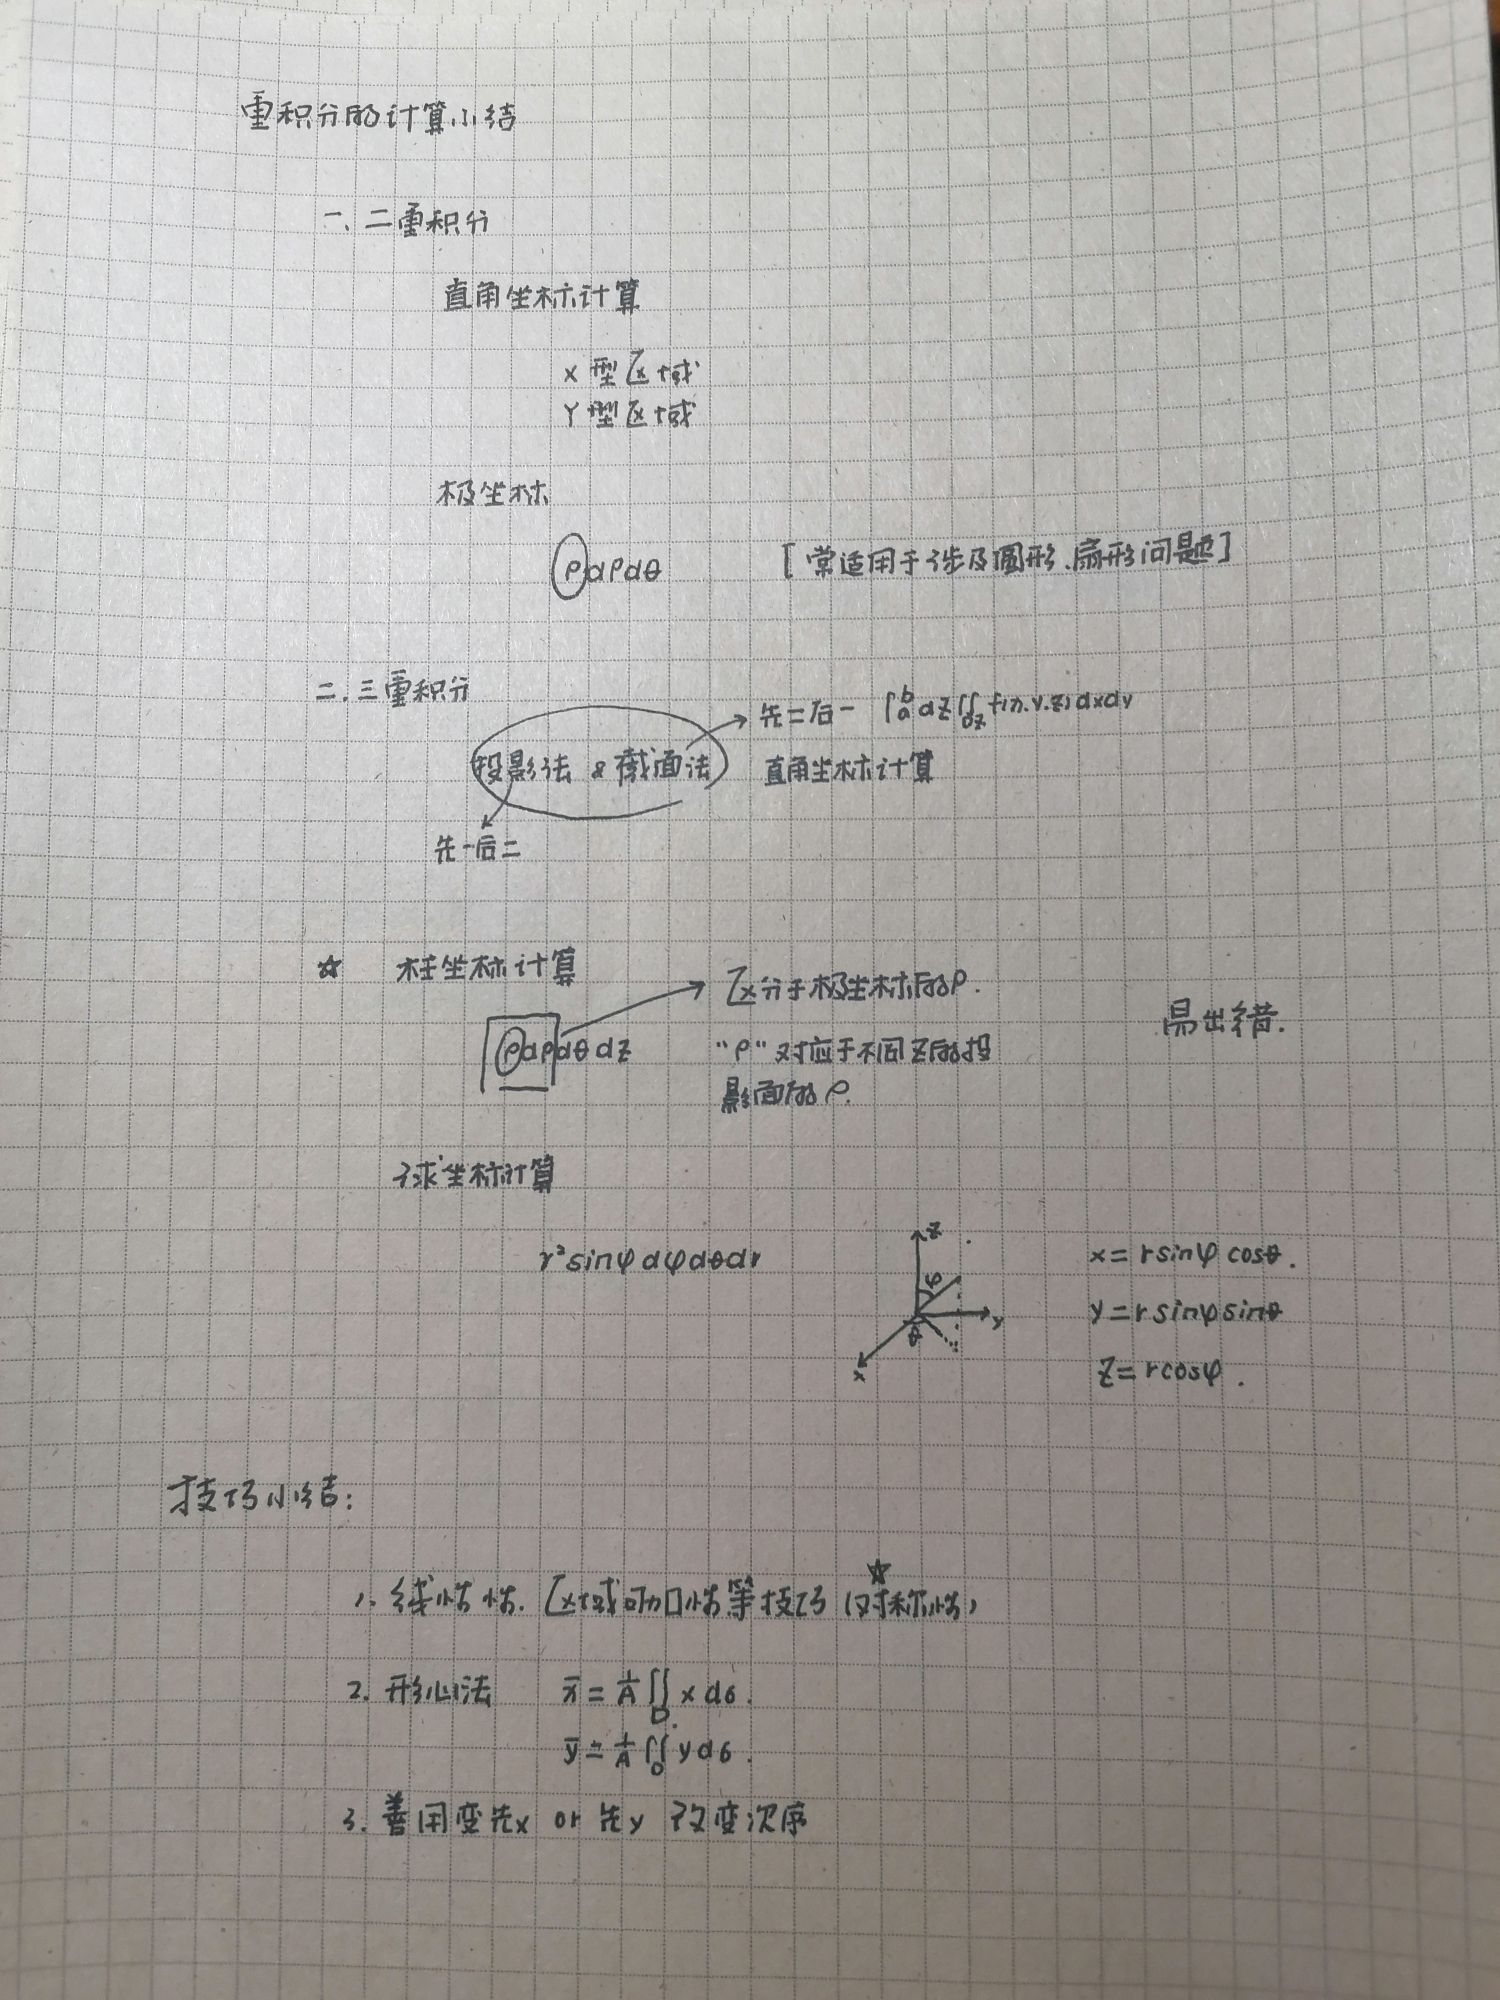 重积分的计算小结
一、二重积分
直角坐标计算
X型区域
Y型区域
极坐标
ρdρdθ [常适用于涉及圆形、扇形问题]
二.三重积分
先二后一 ∫ₐᵇdz∬_Dz f(x.y.z)dxdy
投影法 & 截面法 直角坐标计算
先一后二
☆ 柱坐标计算
区分于极坐标的ρ.
易出错.
ρdρdθdz "ρ"对应于不同z的投
影面的ρ.
球坐标计算
r²sinφdφdθdr
z
φ
y
θ
x
x=rsinφcosθ.
y=rsinφsinθ
z=rcosφ.
技巧小结:
☆
1. 线性性. 区域可加性等技巧(对称性)
2. 形心法 x̄=1/A∬_D xdσ.
ȳ=1/A∬_D ydσ.
3. 善用变先x or 先y 改变次序